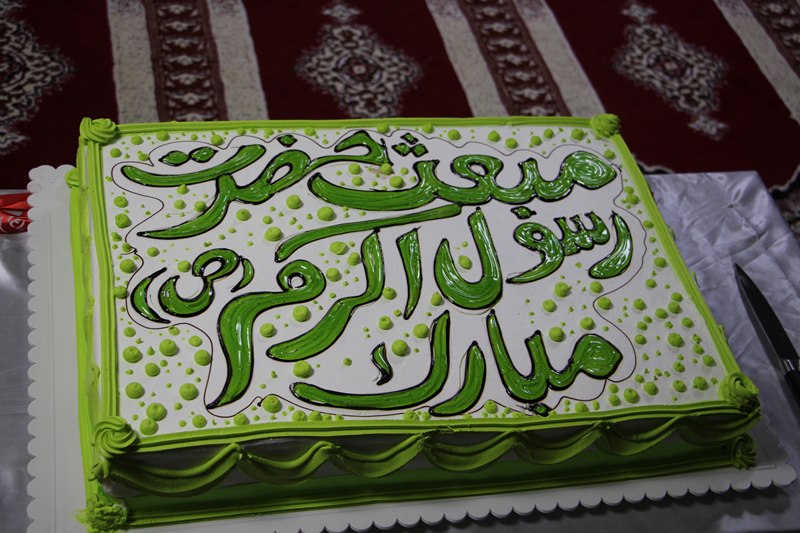 مبعث حضرت
رسول اکرم (ص)
مبارک